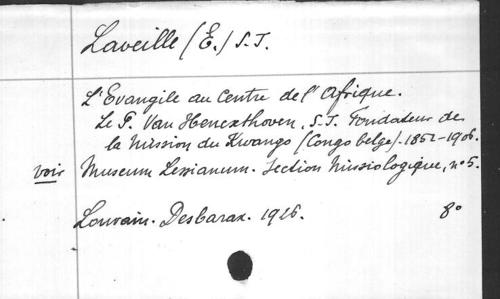 Laveille (E.) S.J.
L'Evangile au Centre de l'Afrique.
Le P. Van Hencxthoven, S.J. Fondateur de
la Mission du Kwango (Congo belge). 1852-1906.
voir Museum Lessianum. Section Missiologique, n° 5.
Louvain. Desbarax. 1926. 8°